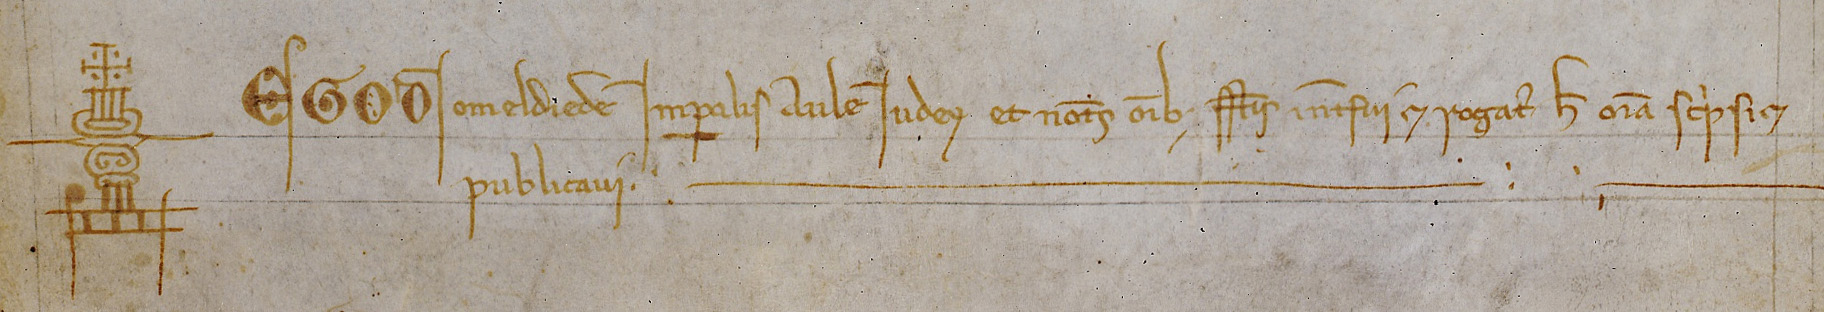 EGO Omeldiedeus Imperialis Aule Iudex et notarius omnibus suprascriptis interfui et rogatus hec omnia scripsi et
publicavi.